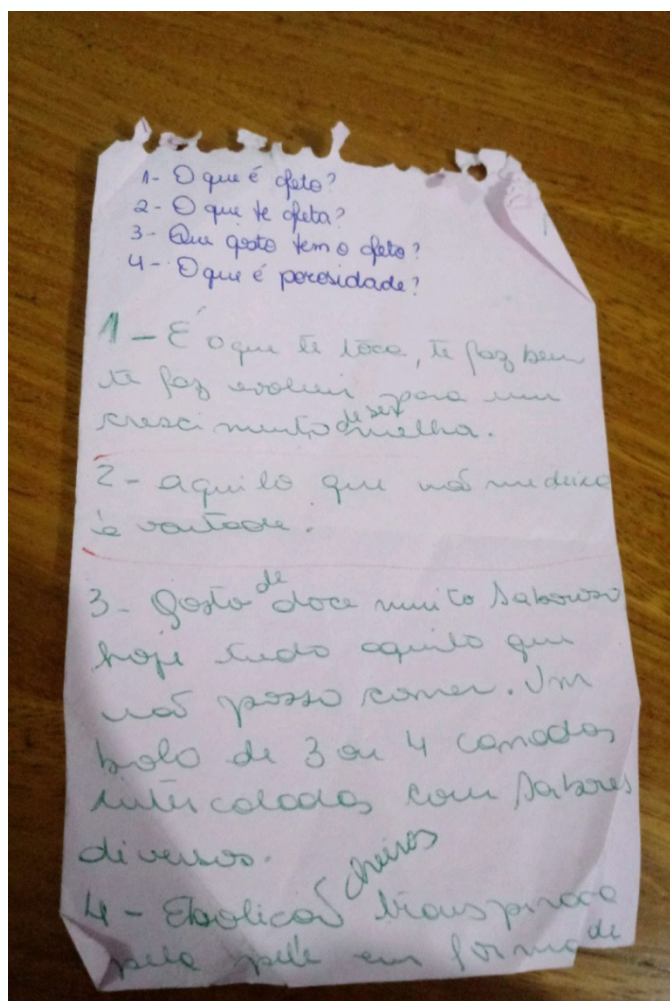 1- O que é afeto?
2- O que te afeta?
3- Que gosto tem o afeto?
4- O que é porosidade?
1 - É o que te toca, te faz bem
te faz evoluir para um
crescimento de ser melhor.
2 - aquilo que não me deixa
à vontade.
3 - Gosto de doce muito saboroso
hoje tudo aquilo que
não posso comer. Um
bolo de 3 ou 4 camadas
intercaladas com sabores
diversos.
cheiros
4 - Ebolição transpiração
pela pele em forma de